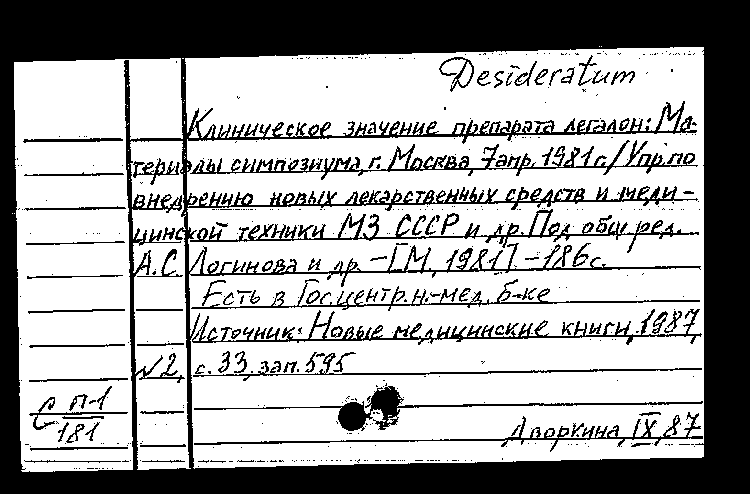 Desideratum
Клиническое значение препарата легалон: Ма-
териалы симпозиума, г. Москва, 7 апр. 1981 г. / Упр. по
внедрению новых лекарственных средств и меди-
цинской техники МЗ СССР и др. Под общ. ред.
А.С. Логинова и др. - [М., 1981] - 186 с.
Есть в Гос. центр. н.-мед. б-ке
Источник: Новые медицинские книги, 1987,
№2, с. 33, зап. 595
С п-1
181
Дворкина, IX, 87